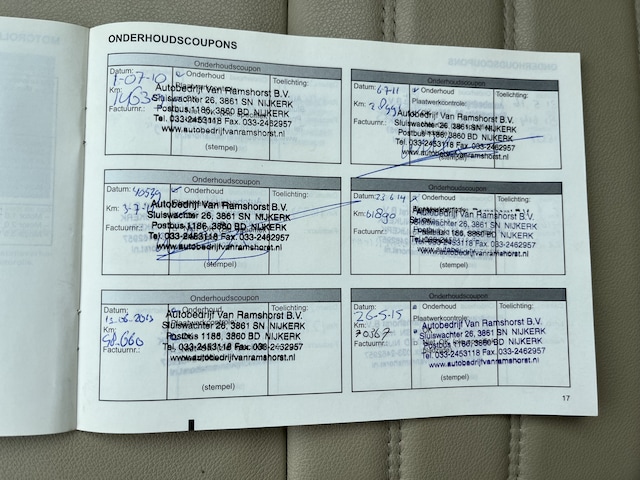 ONDERHOUDSCOUPONS
Onderhoudscoupon
Datum:
1-07-10
Onderhoud
Toelichting:
Km:
Autobedrijf Van Ramshorst B.V.
Sluiswachter 26, 3861 SN NIJKERK
Factuurnr.:
Postbus 1186, 3860 BD NIJKERK
Tel. 033-2453118 Fax. 033-2462957
www.autobedrijfvanramshorst.nl
(stempel)
Onderhoudscoupon
Datum:
Onderhoud
Toelichting:
Km:
Plaatwerkcontrole:
Autobedrijf Van Ramshorst B.V.
Sluiswachter 26, 3861 SN NIJKERK
Factuurnr.:
Postbus 1186, 3860 BD NIJKERK
Tel. 033-2453118 Fax. 033-2462957
www.autobedrijfvanramshorst.nl
(stempel)
Onderhoudscoupon
Datum:
Onderhoud
Toelichting:
Km:
Autobedrijf Van Ramshorst B.V.
Sluiswachter 26, 3861 SN NIJKERK
Factuurnr.:
Postbus 1186, 3860 BD NIJKERK
Tel. 033-2453118 Fax. 033-2462957
www.autobedrijfvanramshorst.nl
(stempel)
Onderhoudscoupon
Datum:
23-6-14
Onderhoud
Toelichting:
Km:
61890
Factuurnr.:
(stempel)
Onderhoudscoupon
Datum:
13-06-2013
Onderhoud
Toelichting:
Km:
58.660
Autobedrijf Van Ramshorst B.V.
Sluiswachter 26, 3861 SN NIJKERK
Factuurnr.:
Postbus 1186, 3860 BD NIJKERK
Tel. 033-2453118 Fax. 033-2462957
www.autobedrijfvanramshorst.nl
(stempel)
Onderhoudscoupon
Datum:
26-5-15
Onderhoud
Toelichting:
Km:
70367
Autobedrijf Van Ramshorst B.V.
Sluiswachter 26, 3861 SN NIJKERK
Factuurnr.:
Postbus 1186, 3860 BD NIJKERK
Tel. 033-2453118 Fax. 033-2462957
www.autobedrijfvanramshorst.nl
(stempel)
17